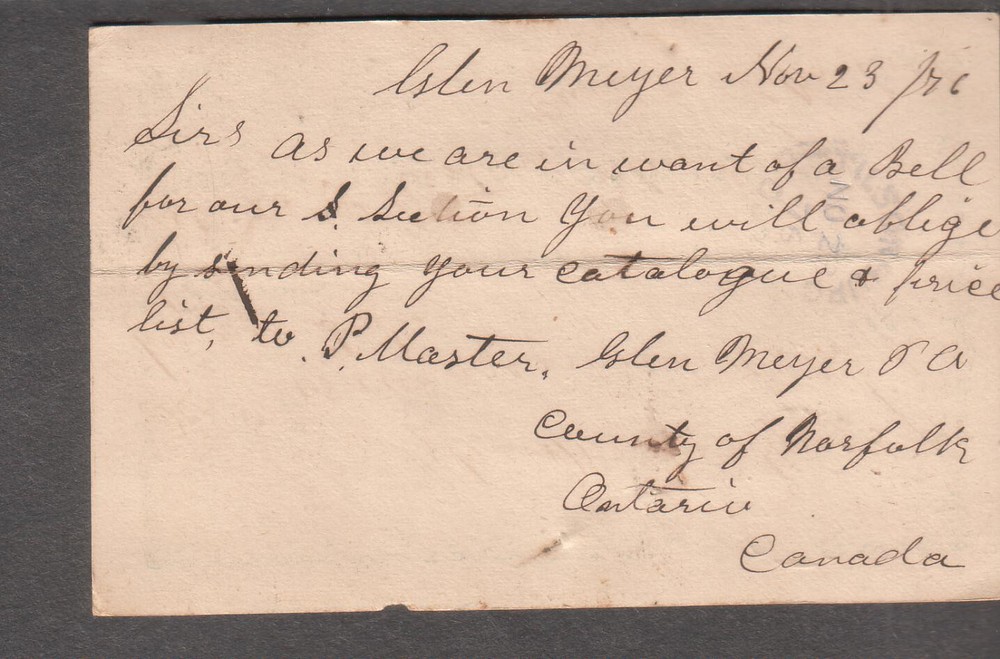 Glen Meyer Nov 23
Sirs as we are in want of a Bell
for our S. Section you will oblige
by sending your catalogue & price
list, to P. Master, Glen Meyer P O
County of Norfolk
Ontario
Canada